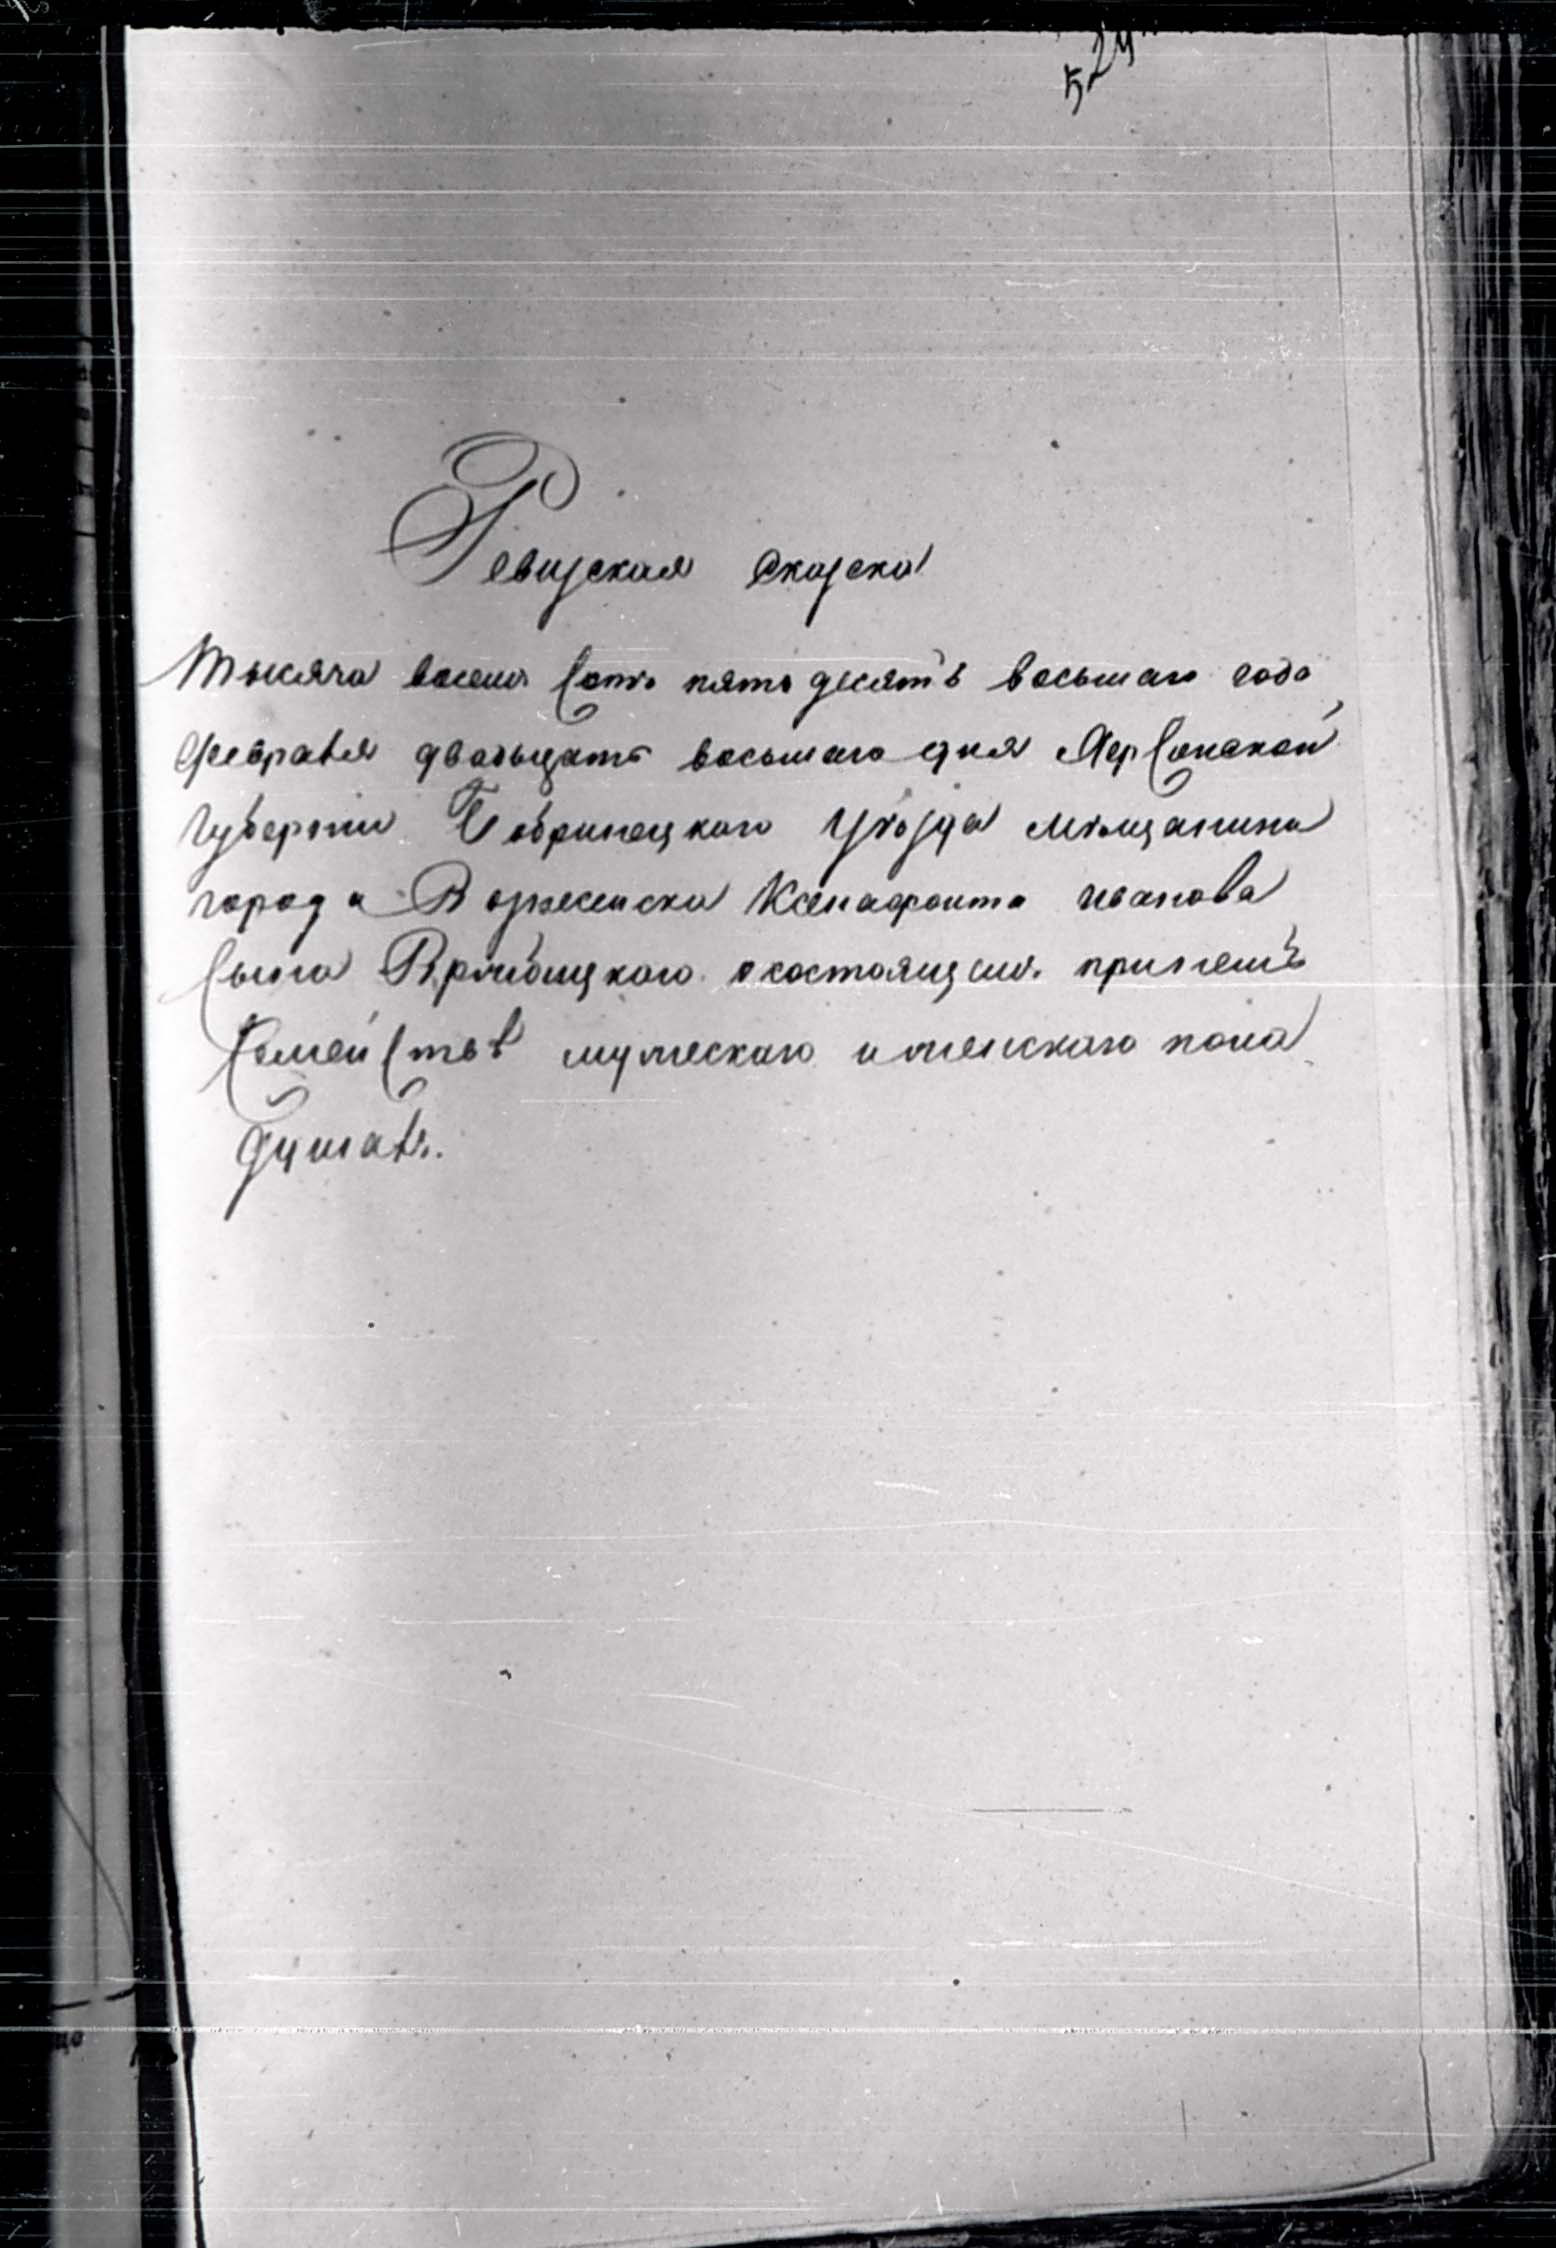 524
Ревизская Сказка
Тысяча восемь сотъ пятьдесятъ восьмаго года
Февраля двадьцать восьмаго дня Херсонской
Губернии Бобринецкого Уѣзда мѣщанина
города Вознесенска Ксенафонта Иванова
Сына о состоящемъ при немъ
Семействѣ мужескаго и женскаго пола
душахъ.